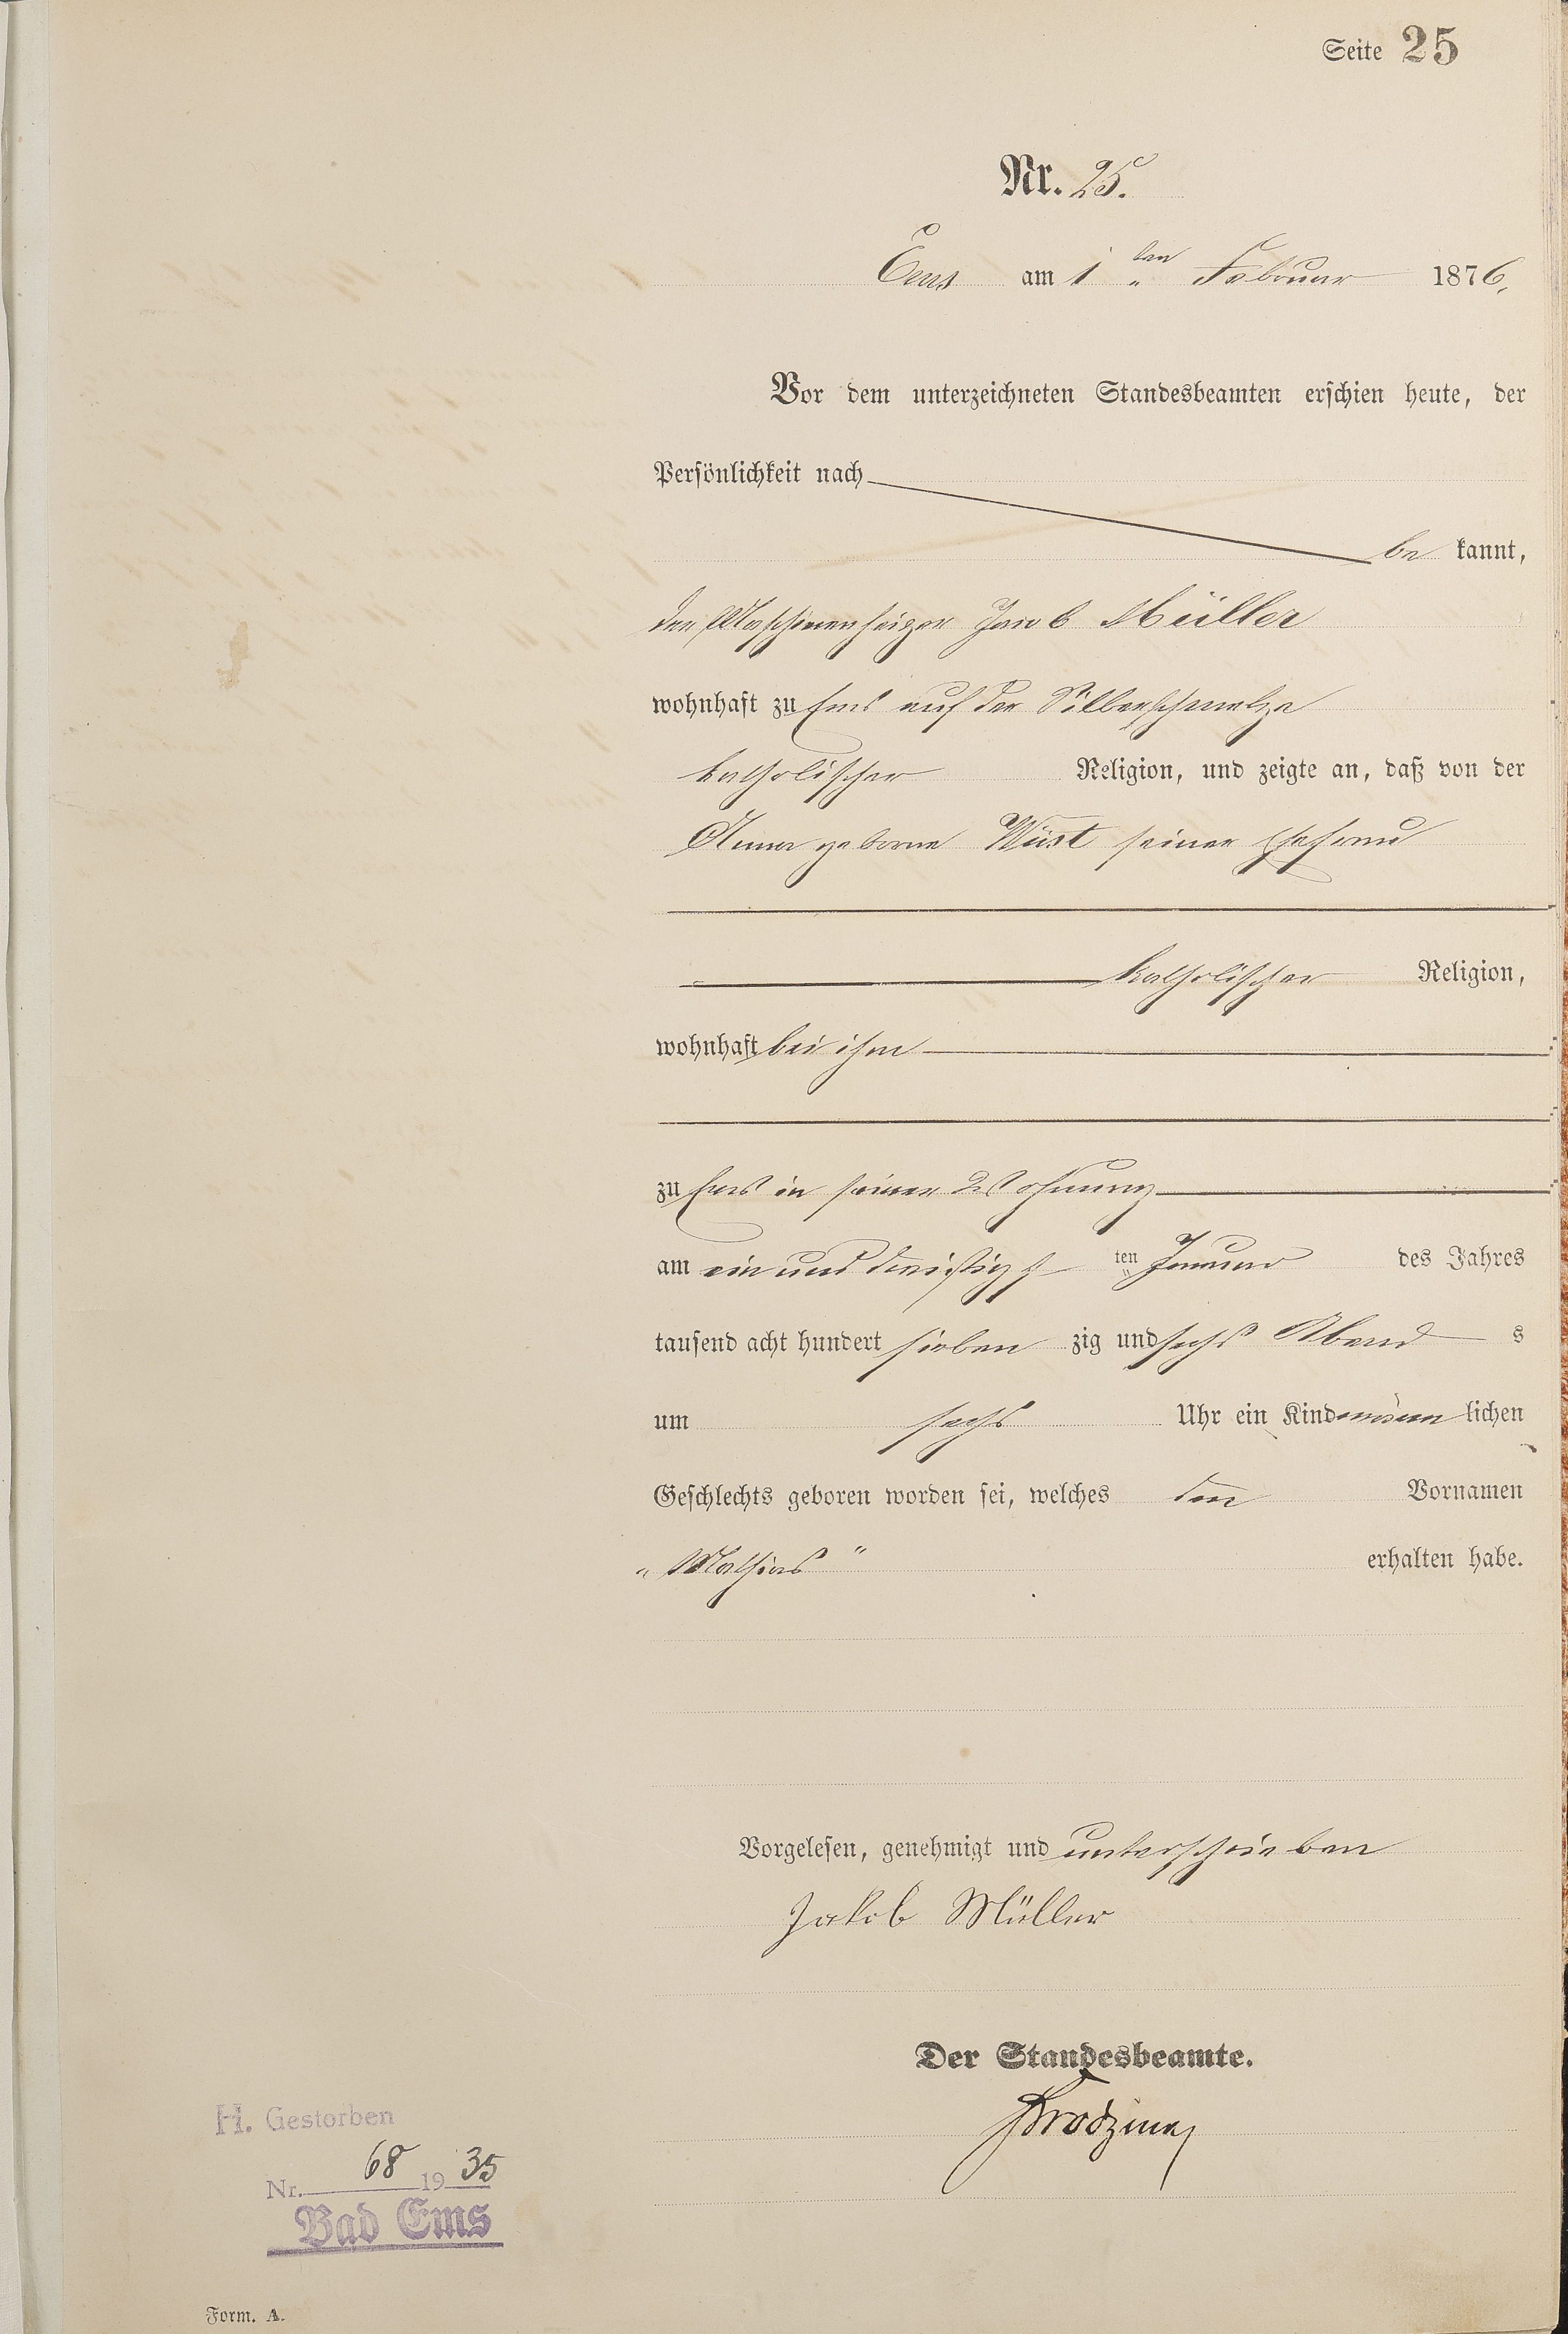 Seite 25
Nr. 25.
Ems am 1 ten Februar 1876,
Vor dem unterzeichneten Standesbeamten erschien heute, der
Persönlichkeit nach
be kannt,
der Maschinenheizer Jacob Müller
wohnhaft zu Ems auf der Silberschmelze
katholischer Religion, und zeigte an, daß von der
Anna geborne Wüst seiner Ehefrau
katholischer Religion,
wohnhaft bei ihm
zu Ems in seiner Wohnung
am ein und dreißigs ten Januar des Jahres
tausend acht hundert sieben zig und sechs Abend s
um sechs Uhr ein Kind männ lichen
Geschlechts geboren worden sei, welches den Vornamen
„Mathias" erhalten habe.
Vorgelesen, genehmigt und unterschrieben
Jakob Müller
Der Standesbeamte.
H. Gestorben
Nr. 68 1935
Bad Ems
Form. A.